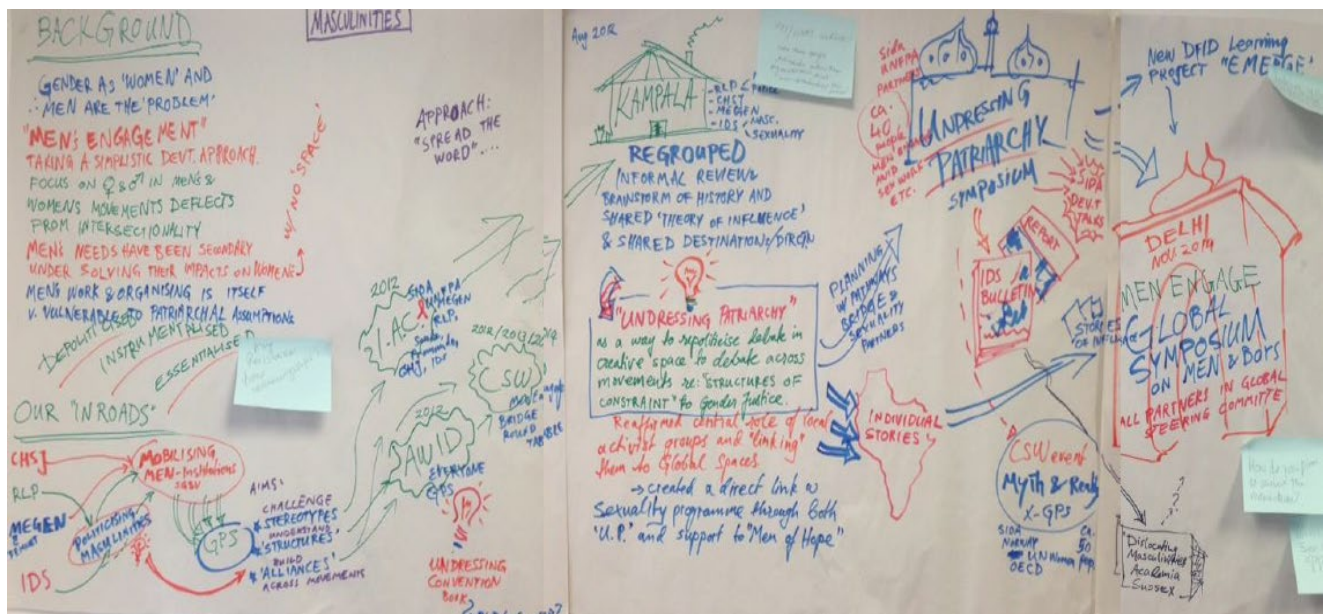 BACKGROUND
MASCULINITIES
GENDER AS 'WOMEN' AND
∴ MEN ARE THE 'PROBLEM'
"MEN'S ENGAGEMENT"
TAKING A SIMPLISTIC DEVT. APPROACH.
FOCUS ON ♀ & ♂ IN MEN'S &
WOMEN'S MOVEMENTS DEFLECTS
FROM INTERSECTIONALITY
MEN'S NEEDS HAVE BEEN SECONDARY
UNDER SOLVING THEIR IMPACTS ON WOMEN
W/ NO 'SPACE'
MEN'S WORK & ORGANISING IS ITSELF
V. VULNERABLE TO PATRIARCHAL ASSUMPTIONS
DEPOLITICISED
INSTRUMENTALISED
ESSENTIALISED
OUR "INROADS"
CHSJ
RLP
MEGEN
IDS
MOBILISING
MEN-Institutions
SGBV
POLITICISING
MASCULINITIES
GPS
AIMS:
CHALLENGE
STEREOTYPES
UNDERSTAND
'STRUCTURES'
BUILD
'ALLIANCES'
ACROSS MOVEMENTS
APPROACH:
"SPREAD THE
WORD"....
2012
I.A.C.
SIDA
MEGEN
RLP,
IDS
2012
AWID
EVERYONE
GPS
2012/2013/2014
CSW
MenEngage
BRIDGE
ROUND
TABLES
UNDRESSING
CONVENTION
BOOK
Aug 2012
KAMPALA
- RLP
- CHSJ
- MEGEN
- IDS
MASC.
SEXUALITY
REGROUPED
INFORMAL REVIEW &
BRAINSTORM OF HISTORY AND
SHARED 'THEORY OF INFLUENCE'
& SHARED DESTINATION/DIRCTN
"UNDRESSING PATRIARCHY"
as a way to repoliticise debate in
creative space to debate across
movements re: "STRUCTURES OF
CONSTRAINT" to Gender Justice.
Reaffirmed central role of local
activist groups and "linking"
them to Global Spaces
→ created a direct link w
Sexuality programme through both
'U.P.' and support to "Men of Hope"
PLANNING
W/ PATHWAYS
BRIDGE &
SEXUALITY
PARTNERS
INDIVIDUAL
STORIES
Sida
UNFPA
PARTNERS
CA.
40
People
MEN ENGAGE
AWID
SEX WORK
ETC.
UNDRESSING
PATRIARCHY
SYMPOSIUM
SIDA
DEV.T
TALKS
REPORT
IDS
BULLETIN
STORIES
OF INFLUENCE
CSW event
Myth & Reality
X-GPS
SIDA
NORWAY
UN Women
OECD
Ca.
50
ppl.
NEW DFID Learning
PROJECT "EMERGE"
DELHI
NOV. 2014
MEN ENGAGE
GLOBAL
SYMPOSIUM
ON MEN & BOYS
ALL PARTNERS IN GLOBAL
STEERING COMMITTEE
Dislocating
Masculinities
Academia
SUSSEX